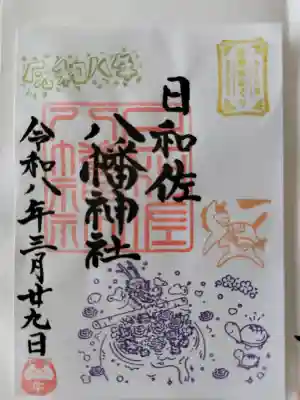 日和佐
八幡神社
令和八年三月廿九日
令和八年